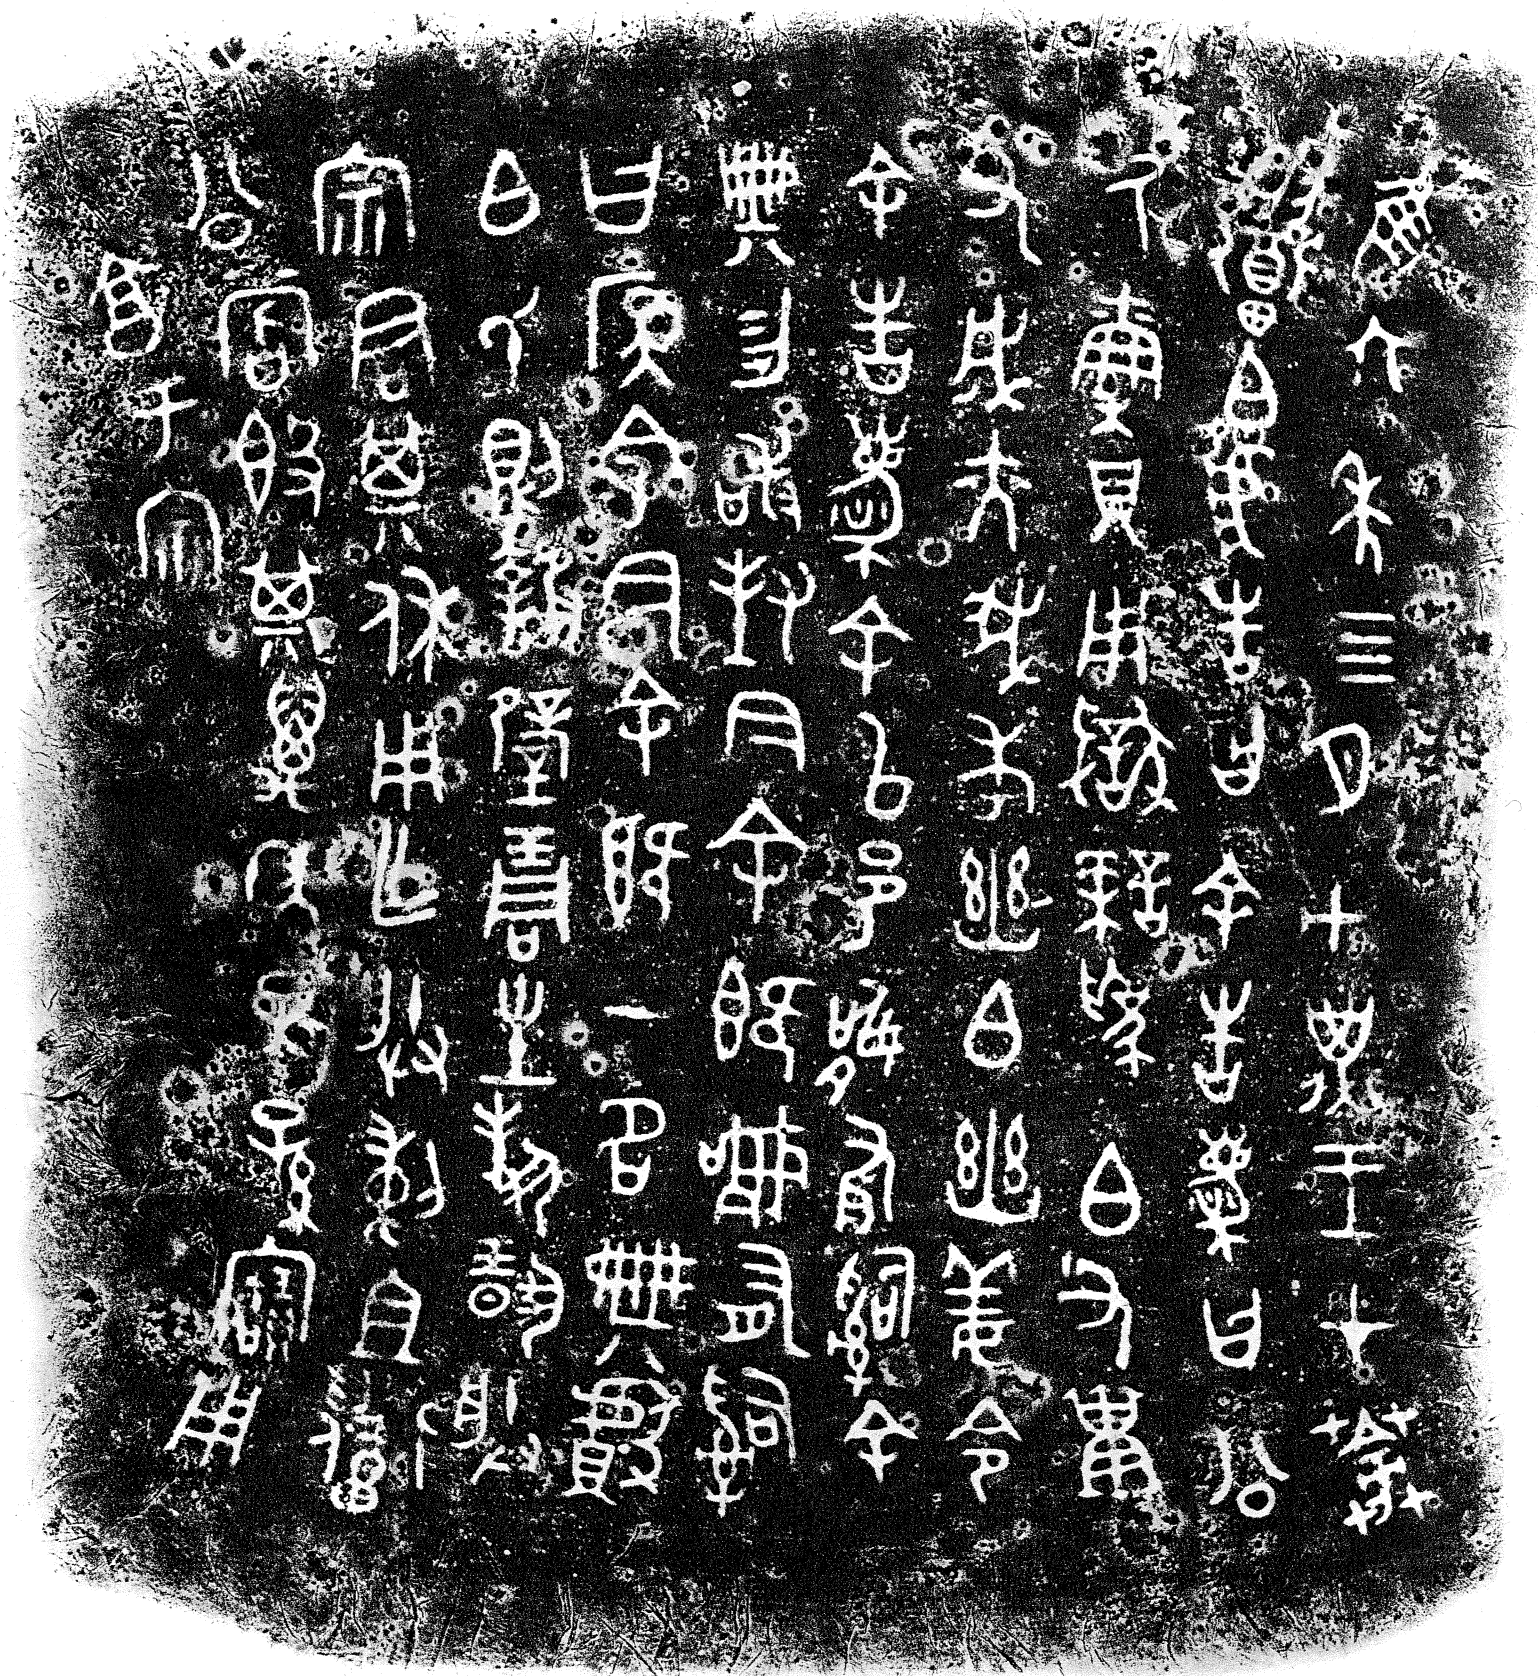 隹六年四月甲子王才𦰩
𥃝白虎告曰余告慶曰公
氒稟貝用獄諫為白又祗
又成亦我考幽白幽姜令
余告慶余㠯邑訊有𤔲余
典勿敢封今余既訊有𤔲
曰㕣令今余既一名典獻
白氏則報璧琱生對揚朕
宗君其休用乍朕剌且𥃝
公嘗𣪘其萬年子孫寶用
亯于宗